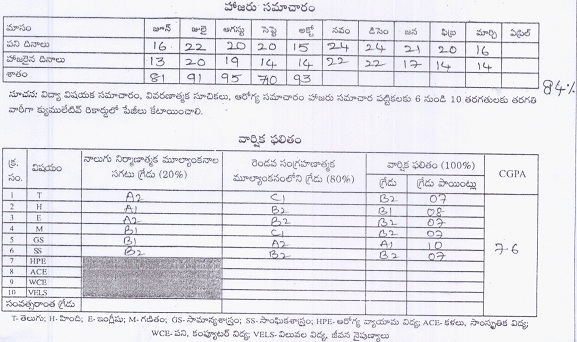 హాజరు సమాచారం
మాసం జూన్ జులై ఆగస్టు సెప్టె అక్టో నవం డిసెం జన ఫిబ్ర మార్చి ఏప్రిల్
పని దినాలు 16 22 20 20 15 24 24 21 20 16
హాజరైన దినాలు 13 20 19 14 14 22 22 17 14 14
శాతం 81 91 95 70 93
84%
సూచన: విద్యా విషయక సమాచారం, వివరణాత్మక సూచికలు, ఆరోగ్య సమాచారం హాజరు సమాచార పట్టికలకు 6 నుండి 10 తరగతులకు తరగతి
వారీగా క్యుములేటివ్ రికార్డులో పేజీలు కేటాయించాలి.
వార్షిక ఫలితం
క్ర. సం. విషయం నాలుగు నిర్మాణాత్మక మూల్యాంకనాల సగటు గ్రేడు (20%) రెండవ సంగ్రహణాత్మక మూల్యాంకనంలోని గ్రేడు (80%) వార్షిక ఫలితం (100%) CGPA
గ్రేడు గ్రేడు పాయింట్లు
1 T A2 C1 B2 07
2 H B1 B2 B1 08
3 E A2 B2 B2 07
4 M B1 C1 B2 07
5 GS B1 A2 A1 10
6 SS B2 B2 B2 07
7.6
7 HPE
8 ACE
9 WCE
10 VELS
సంవత్సరాంత గ్రేడు
T- తెలుగు; H- హింది; E- ఇంగ్లీషు; M- గణితం; GS- సామాన్యశాస్త్రం; SS- సాంఘికశాస్త్రం; HPE- ఆరోగ్య వ్యాయామ విద్య; ACE- కళలు, సాంస్కృతిక విద్య;
WCE- పని, కంప్యూటర్ విద్య; VELS- విలువల విద్య, జీవన నైపుణ్యాలు